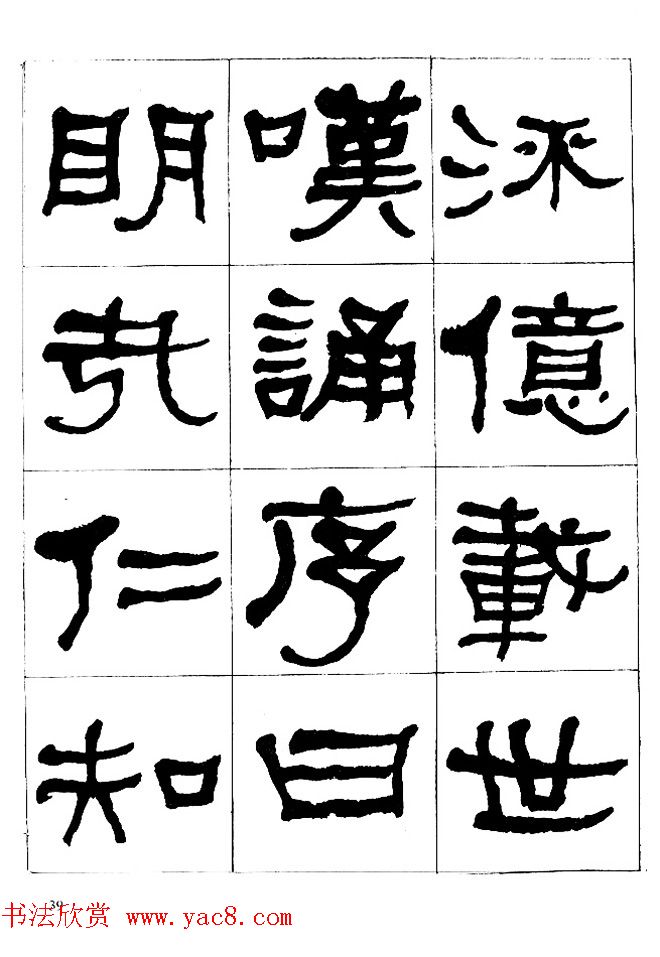 流億載世
嘆誦序曰
明哉仁知
39
书法欣赏 www.yac8.com